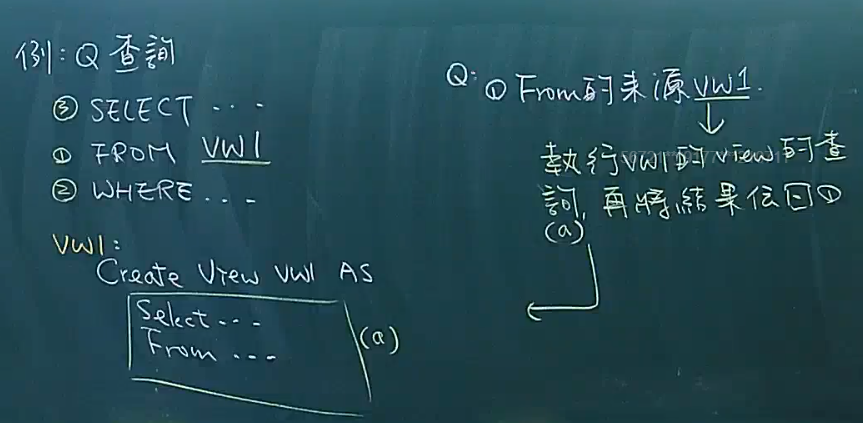 例：Q 查詢
③ SELECT ...
① FROM VW1
② WHERE ...
VW1:
Create View VW1 AS
Select ...
From ...
(a)
Q: ① From的來源VW1.
執行VW1的View的查
詢, 再將結果傳回①
(a)